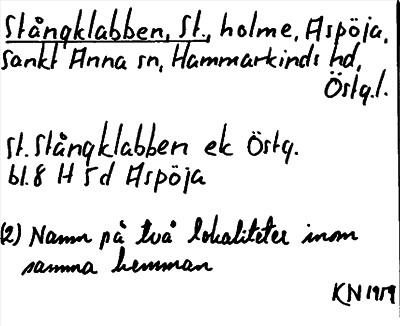 Stångklabben, St., holme, Aspöja,
Sankt Anna sn, Hammarkinds hd,
Östg.l.
St. Stångklabben ek Östg.
bl.8 H 5 d Aspöja
(2) Namn på två lokaliteter inom
samma hemman
KN 1959